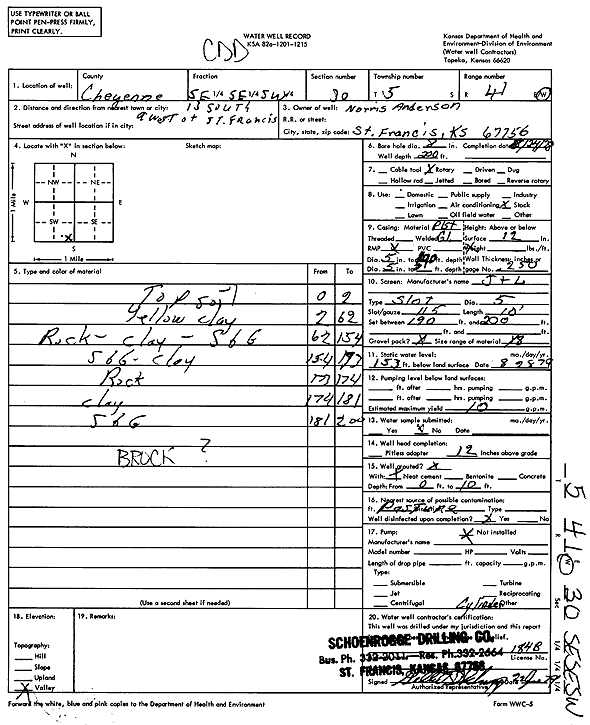 USE TYPEWRITER OR BALL
POINT PEN-PRESS FIRMLY,
PRINT CLEARLY.
WATER WELL RECORD
KSA 82a-1201-1215
CDD
Kansas Department of Health and
Environment-Division of Environment
(Water well Contractors)
Topeka, Kansas 66620
1. Location of well: County Cheyenne Fraction SE 1/4 SE 1/4 SW 1/4 Section number 30 Township number T 5 S Range number R 41 E/W
2. Distance and direction from nearest town or city: 13 South
9 West of St. Francis
Street address of well location if in city:
3. Owner of well: Norris Anderson
R.R. or street:
City, state, zip code: St. Francis, KS 67756
4. Locate with "X" in section below: Sketch map:
N
NW NE
W E
SW SE
X
S
1 Mile
1 Mile
5. Type and color of material From To
Top soil 0 2
Yellow clay 2 62
Rock - clay - S&G 62 154
S&G - clay 154
Rock 174
clay 174 181
S&G 181 200
BROCK ?
(Use a second sheet if needed)
6. Bore hole dia. in. Completion date
Well depth 200 ft.
7. Cable tool X Rotary Driven Dug
Hollow rod Jetted Bored Reverse rotary
8. Use: Domestic Public supply Industry
Irrigation Air conditioning X Stock
Lawn Oil field water Other
9. Casing: Material Height: Above or below
Threaded Welded Surface 12 in.
RMP X PVC Weight lbs./ft.
Dia. 5 in. to ft. depth Wall Thickness: inches or
Dia. 5 in. to ft. depth gage No. .250
10. Screen: Manufacturer's name J + L
Type Slot Dia. 5
Slot/gauze Length 10'
Set between 190 ft. and 200 ft.
ft. and ft.
Gravel pack? X Size range of material
11. Static water level: mo./day/yr.
153 ft. below land surface Date
12. Pumping level below land surfaces:
ft. after hrs. pumping g.p.m.
ft. after hrs. pumping g.p.m.
Estimated maximum yield 10 g.p.m.
13. Water sample submitted: mo./day/yr.
Yes X No Date
14. Well head completion:
Pitless adapter 12 Inches above grade
15. Well grouted? X
With: Neat cement Bentonite Concrete
Depth: From 0 ft. to 10 ft.
16. Nearest source of possible contamination:
ft. Pasture Type
Well disinfected upon completion? X Yes No
17. Pump: X Not installed
Manufacturer's name
Model number HP Volts
Length of drop pipe ft. capacity g.p.m.
Type:
Submersible Turbine
Jet Reciprocating
Centrifugal Cylinder Other
18. Elevation:
Topography:
Hill
Slope
Upland
X Valley
19. Remarks:
20. Water well contractor's certification:
This well was drilled under my jurisdiction and this report
SCHOENROGGE DRILLING CO.
Bus. Ph. 332-2011 - Res. Ph. 332-2664
ST. FRANCIS, KANSAS 67756
184B
License No.
Signed Date
Authorized Representative
Forward the white, blue and pink copies to the Department of Health and Environment
Form WWC-5
T 5 R 41 W Sec 30 SE SE SW
1/4 1/4 1/4